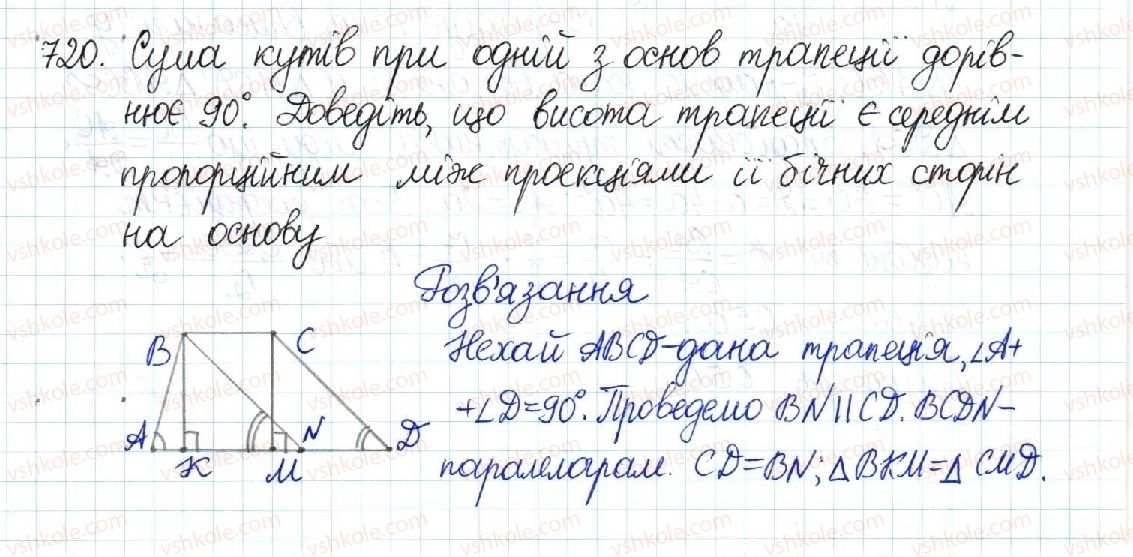 720. Сума кутів при одній з основ трапеції дорів-
нює 90°. Доведіть, що висота трапеції є середнім
пропорційним між проекціями її бічних сторін
на основу
Розв'язання
B C
A K M N D
Нехай ABCD-дана трапеція, ∠A+
+∠D=90°. Проведемо BN||CD. BCDN-
паралеларам. CD=BN; △BKM=△CMD.
vshkole.com